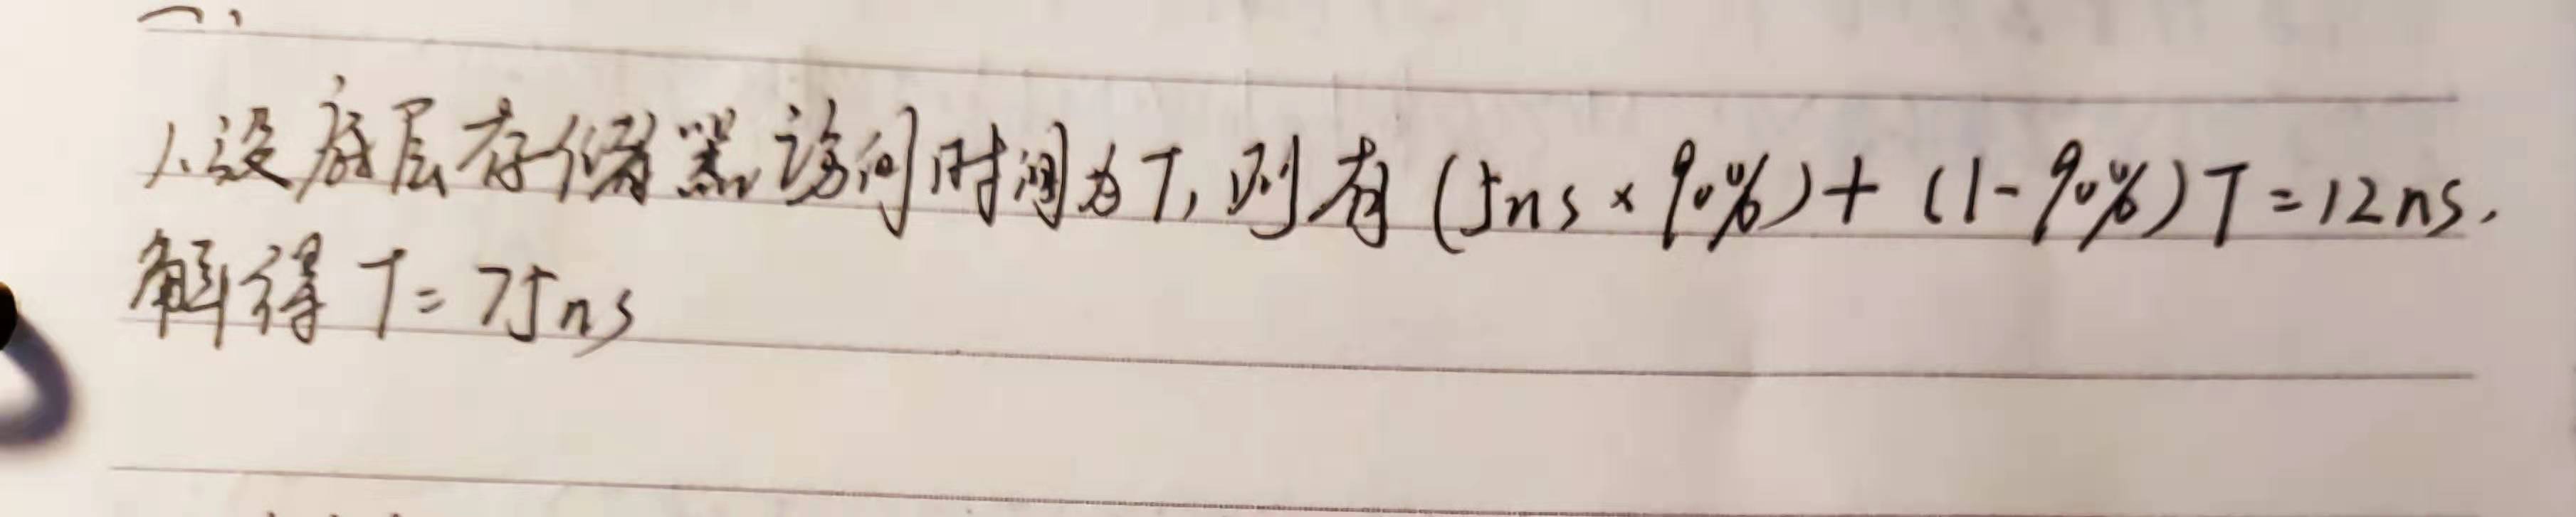 1.设底层存储器访问时间为T,则有(5ns×90%)+(1-90%)T=12ns.
解得T=75ns